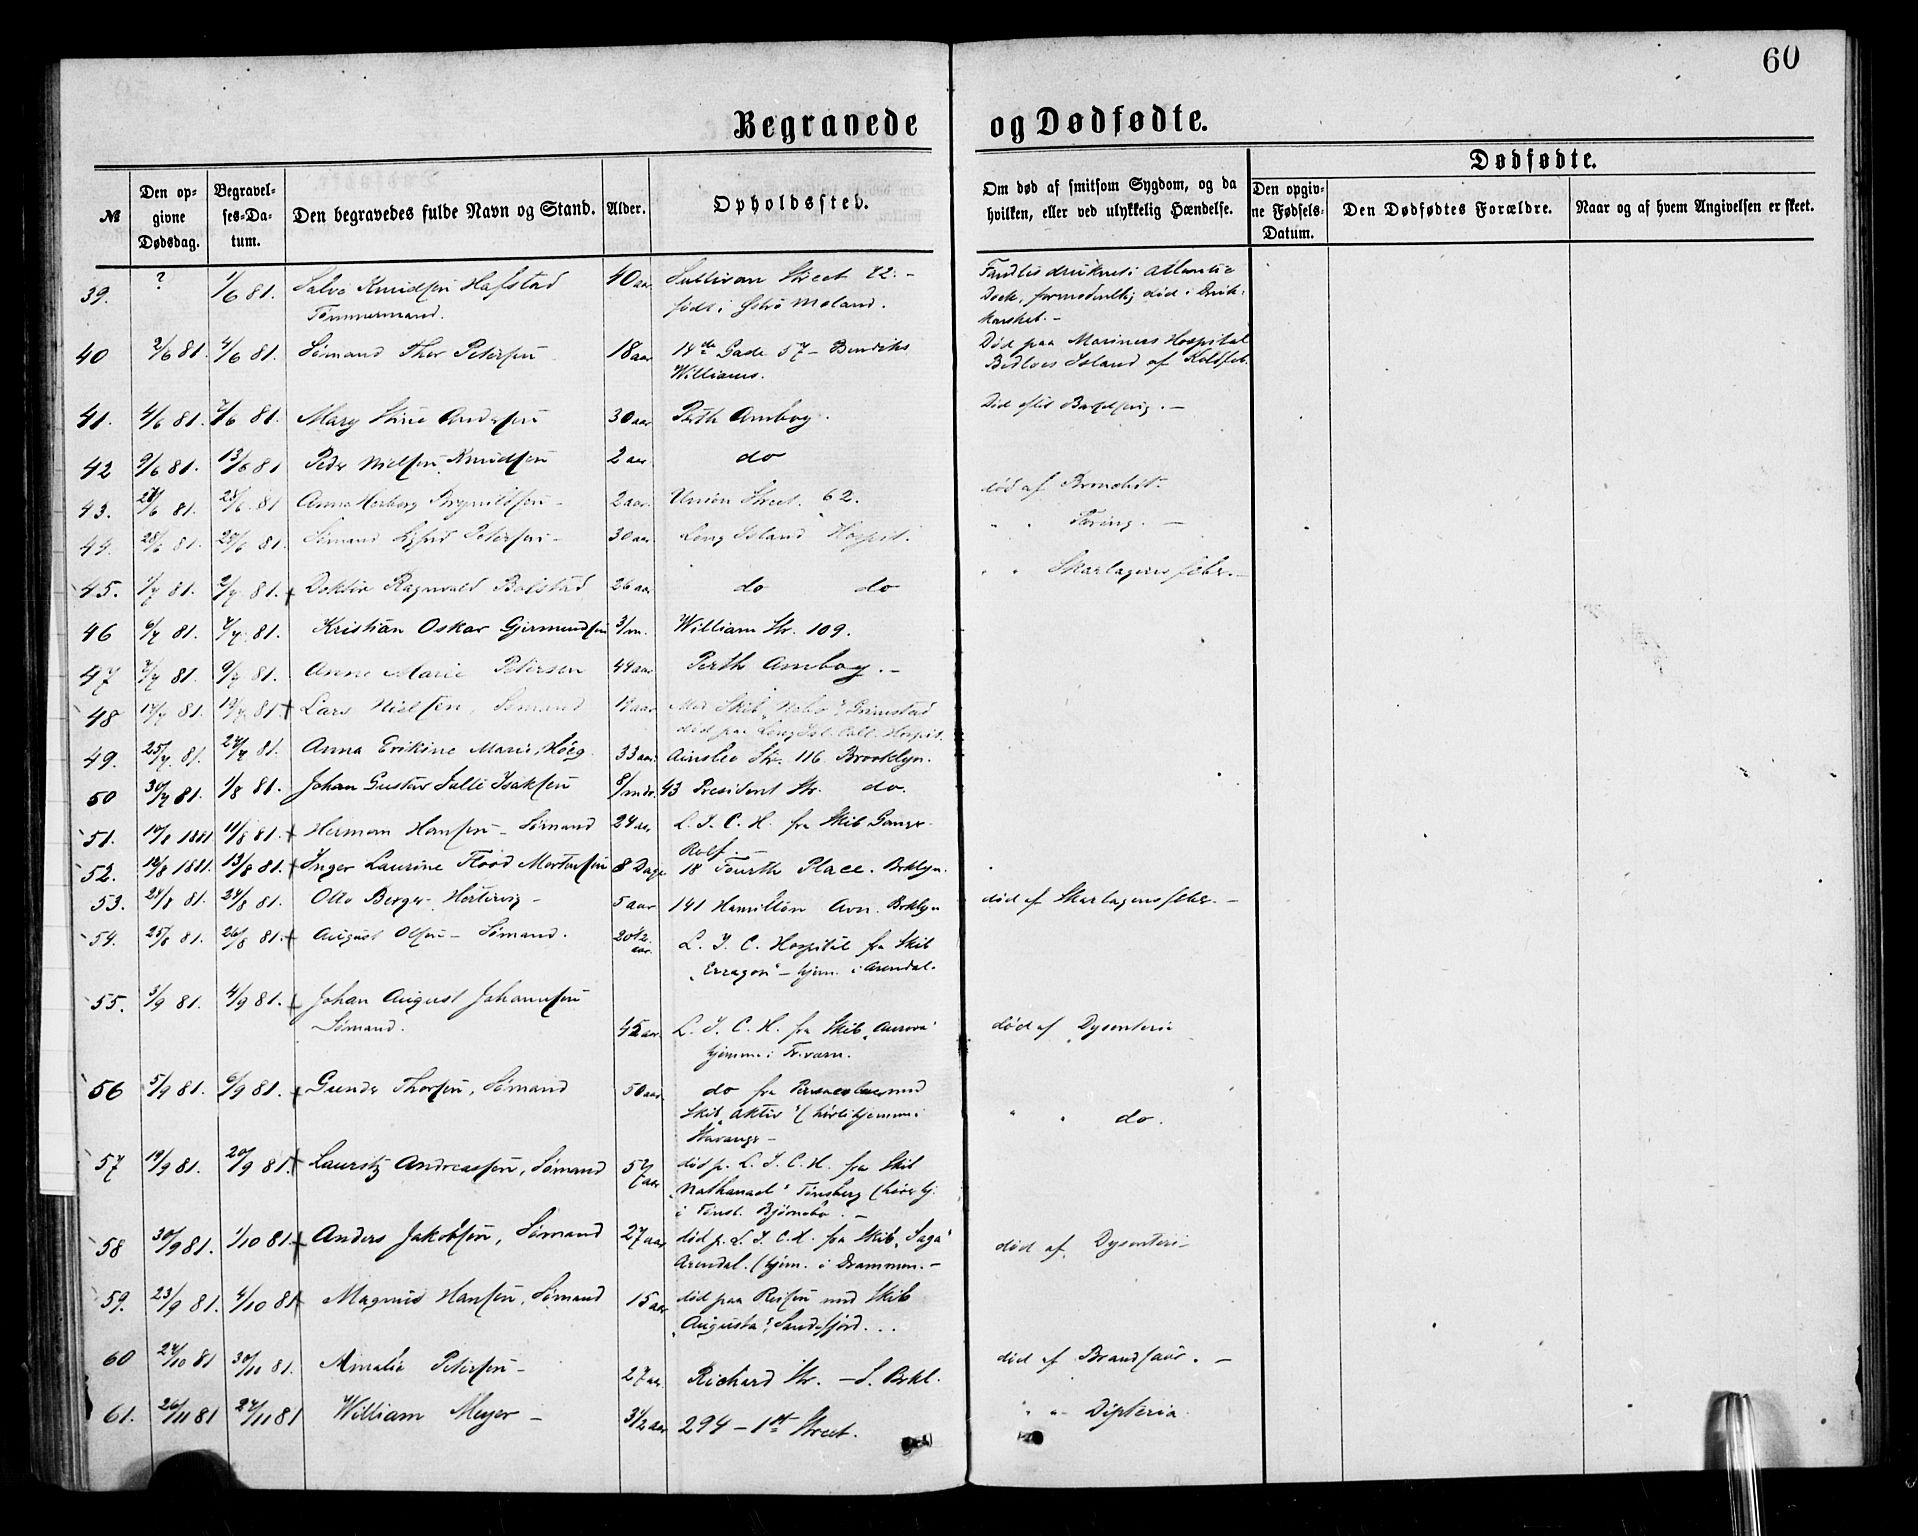 60
Begravede og Dødfødte.
Dødfødte.
№
Den opgivne Dødsdag.
Begravelses-Datum.
Den begravedes fulde Navn og Stand.
Alder.
Opholdssted.
Om død af smitsom Sygdom, og da hvilken, eller ved ulykkelig Hændelse.
Den opgivne Fødsels-Datum.
Den Dødfødtes Forældre.
Naar og af hvem Angivelsen er skeet.
39. ? 1/6 81. Salve Knudsen Hafstad 40 aar Sullivan Street 82. - Fandtes druknet i Atlantic
Tømmermand. født i Østre Moland. Dock, formodentlig død i Drik-
kenskab. -
40 2/6 81. 4/6 81. Sømand Thor Petersen 18 aar 14de Gade 57 - Bendiks Død paa Mariners Hospital
Williams. Bedloes Island af Koldfeb.
41. 4/6 81. 7/6 81. Mary Stine Andersen 30 aar Perth Amboy. Død efter Barselseng. -
42 9/6 81. 13/6 81 Peder Nielsen Knudsen 2 aar do
43. 81. 28/6 81 Anna Herborg Brynildsen - 2 aar. Union Street. 62. død af Bronchit.
44. 28/6 81. 81. Sømand Petersen - 30 aar. Long Island Hospit. " " Tæring. -
45. 1/7 81. 2/7 81. + Doktor Ragnvald Bolstad 26 aar do do " " Skarlagensfeber. -
46 6/7 81. 7/7 81. Kristian Oskar Gjermundsen 3/m. William Str. 109.
47 7/7 81. 9/7 81. Anne Marie Petersen 44 aar Perth Amboy. -
48 17/7 81. 19/7 81 + Lars Nielsen, Sømand aar Med Skib „Nebo“, Grimstad
død paa Long Isl. Coll. Hospit.
49. 25/7 81. 27/7 81. Anna Erikine Marie Høeg. 33 aar. Ainslee Str. 116. Brooklyn.
50 30/7 81. 1/8 81. Johan Gustav Julli Isaksen 8/mdr. 43 President Str. do.
51. 10/8 1881 11/8 81. + Herman Hansen - Sømand 24 aar L. I. C. H. fra Skib Ganger
Rolf. -
52. 12/8 1881. 13/8 81. + Inger Laurine Flood Mortensen 8 Dage 18 Fourth Place. Brklyn.
53. 24/8 81. 24/8 81. Otto Berger Hertervig - 5 aar 141 Hamilton Aven. Brklyn død af Skarlagensfeber. -
54. 25/8 81. 26/8 81. + August Olsen - Sømand. 20 1/2 aar. L. I. C. Hospital fra Skib
„Erragon“ - hjem. i Arendal.
55. 3/9 81. 4/9 81. + Johan August Johannesen
Sømand. 45 aar. L. I. C. H. fra Skib „Aurora“ død af Dysenteria
hjemme i Fr.værn.
56 5/9 81. 6/9 81. + Gunder Thorsen, Sømand 50 aar do fra med
Skib „Aktiv“ (hørte hjemme i " " do.
Stavanger -
57 19/9 81. 20/9 81. + Lauritz Andreassen, Sømand 57 aar død p. L. I. C. H. fra Skib
„Nathanael“ Tønsberg (hører hj.
i Tønsb. Bjørnebo. -
58 30/9 81. 1/10 81. + Anders Jakobsen, Sømand 27 aar død p. L. I. C. H. fra Skib „Saga“ død af Dysenteri -
Arendal. (hjem. i Drammen. -
59. 23/9 81. 4/10 81 + Magnus Hansen, Sømand 15 aar død paa Reisen med Skib
„Augusta“, Sandefjord. . .
60 27/10 81 30/10 81. Amalie Petersen - 27 aar. Richard Str. - S. Brkl. død af Brandsaar. -
61. 26/11 81 27/11 81 William Meyer - 3 1/2 aar 294 - 1st Street. " " Dipteria